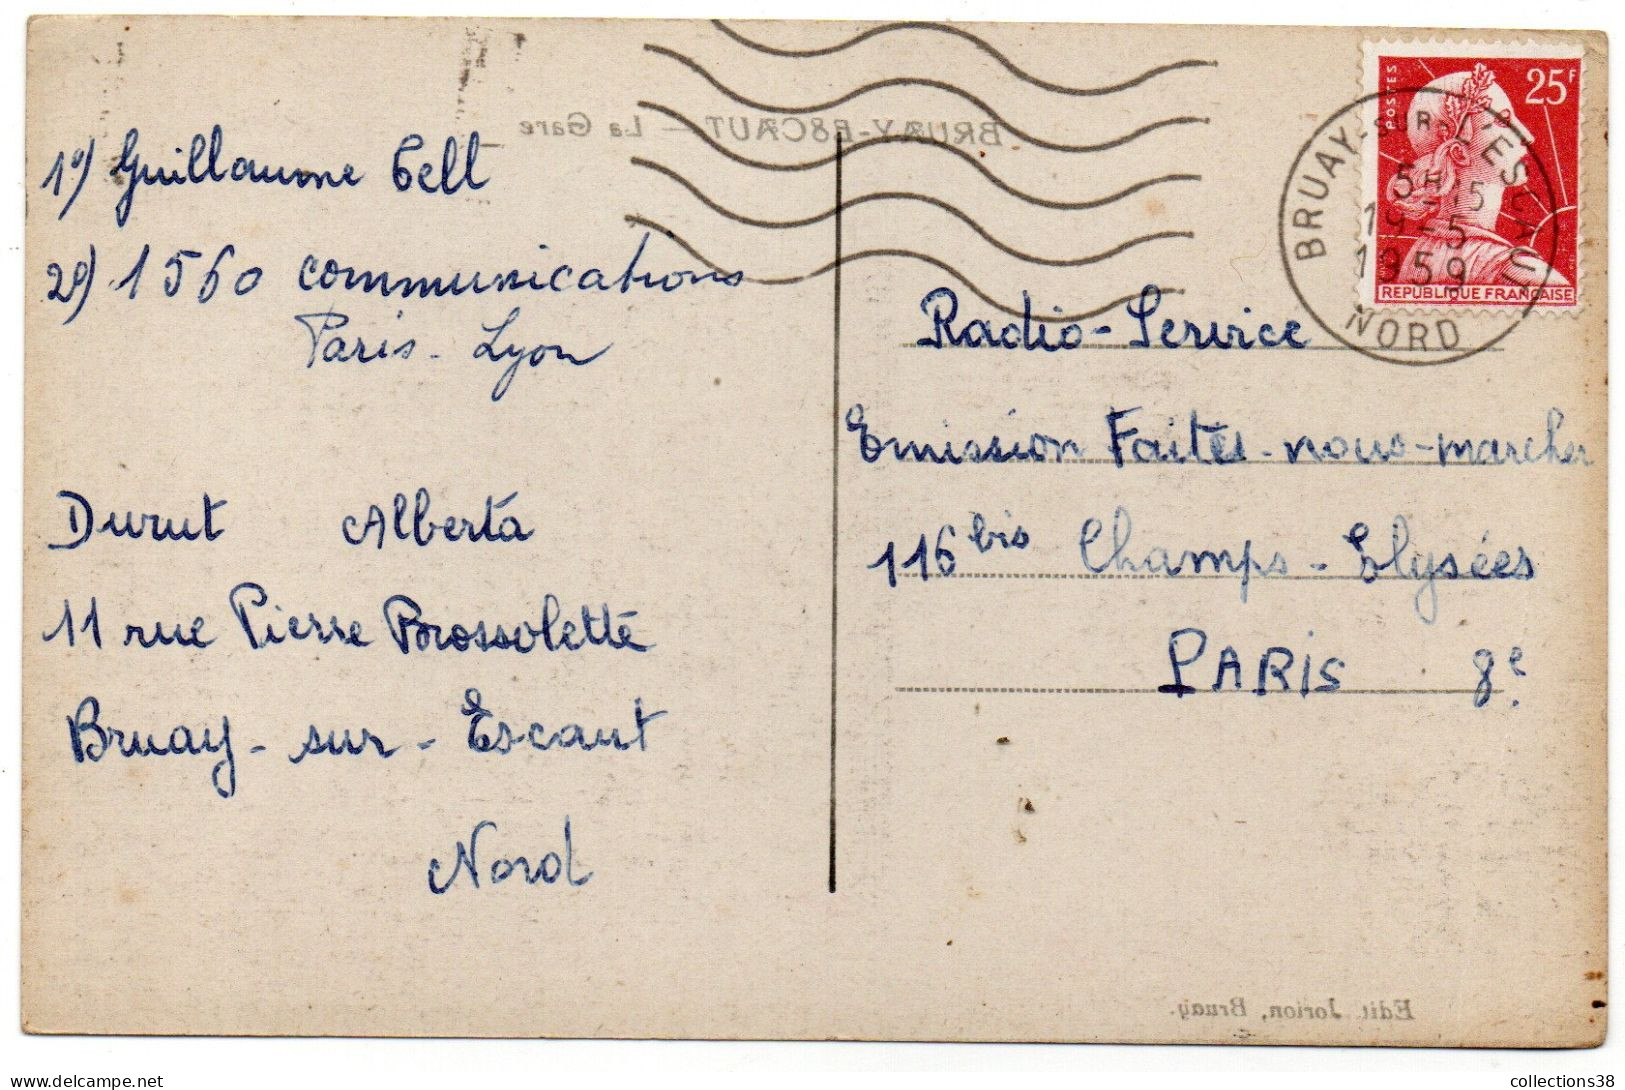 BRUAY-ESCAUT — La Gare
1º) Guillaume Tell
2º) 1560 communications
Paris - Lyon
Durut Alberta
11 rue Pierre Brossolette
Bruay - sur - Escaut
Nord
POSTES
25F
REPUBLIQUE FRANÇAISE
BRUAY-SUR-L'ESCAUT
19-5
1959
NORD
Radio-Service
Emission Faites-nous-marcher
116 bis Champs-Elysées
PARIS 8e.
Edit. Jorion, Bruay.
collections38